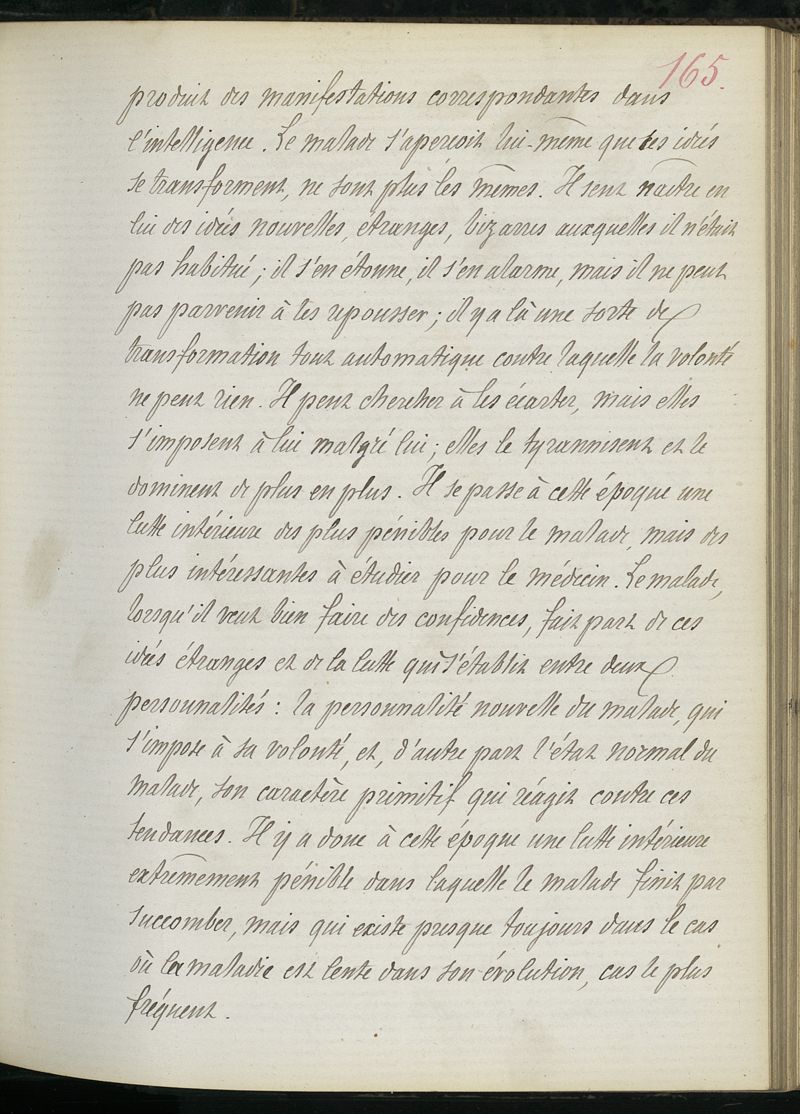 165.
produit des manifestations correspondantes dans
l'intelligence. Le malade s'aperçoit lui-même que ses idées
se transforment, ne sont plus les mêmes. Il sent naître en
lui des idées nouvelles, étranges, bizarres auxquelles il n'était
pas habitué ; il s'en étonne, il s'en alarme, mais il ne peut
pas parvenir à les repousser ; il y a là une sorte de
transformation tout automatique contre laquelle la volonté
ne peut rien. Il peut chercher à les écarter, mais elles
s'imposent à lui malgré lui ; elles le tyrannisent et le
dominent de plus en plus. Il se passe à cette époque une
lutte intérieure des plus pénibles pour le malade, mais des
plus intéressantes à étudier pour le médecin. Le malade,
lorsqu'il veut bien faire des confidences, fait part de ces
idées étranges et de la lutte qui s'établit entre deux
personnalités : la personnalité nouvelle du malade, qui
s'impose à sa volonté, et, d'autre part l'état normal du
malade, son caractère primitif qui réagit contre ces
tendances. Il y a donc à cette époque une lutte intérieure
extrêmement pénible dans laquelle le malade finit par
succomber, mais qui existe presque toujours dans le cas
où la maladie est lente dans son évolution, cas le plus
fréquent.